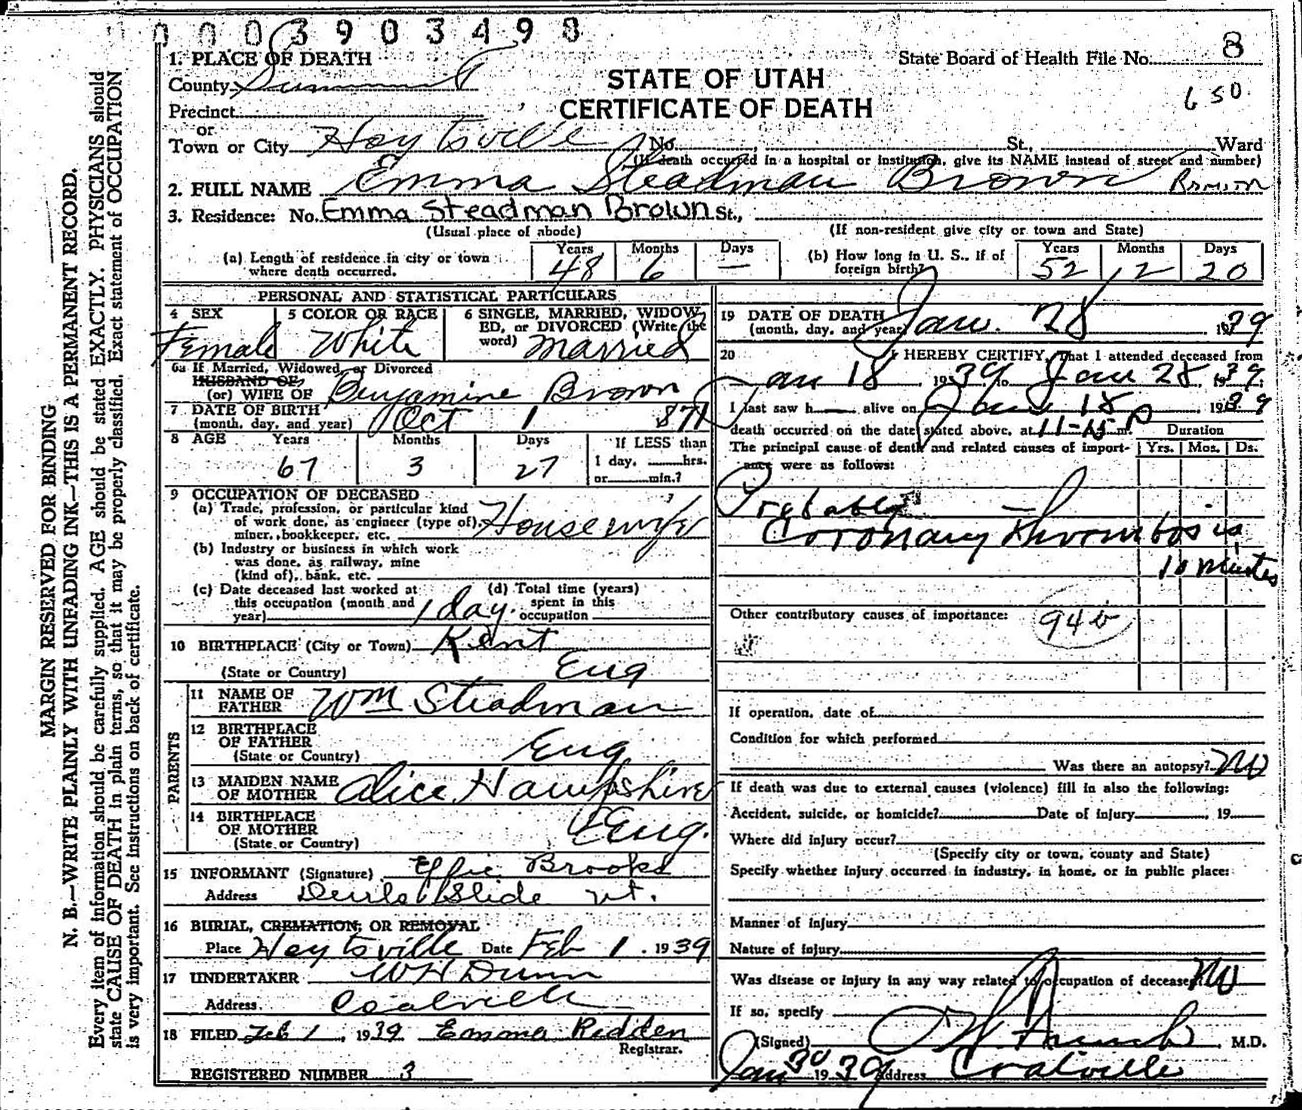 0003903498
1. PLACE OF DEATH
State Board of Health File No. 8
County Summit
STATE OF UTAH
650
Precinct
CERTIFICATE OF DEATH
or
Town or City Hoytsville No. St., Ward
(If death occurred in a hospital or institution, give its NAME instead of street and number)
2. FULL NAME Emma Steadman Brown Brown
3. Residence: No. Emma Steadman Brown St.,
(Usual place of abode) (If non-resident give city or town and State)
(a) Length of residence in city or town where death occurred. Years 48 Months 6 Days —
(b) How long in U. S., if of foreign birth? Years 52 Months 12 Days 20
PERSONAL AND STATISTICAL PARTICULARS
4 SEX Female
5 COLOR OR RACE White
6 SINGLE, MARRIED, WIDOWED, or DIVORCED (Write the word) Married
6a If Married, Widowed, or Divorced
HUSBAND OF
(or) WIFE OF Benjamine Brown
7 DATE OF BIRTH
(month, day, and year) Oct 1 871
8 AGE Years 67 Months 3 Days 27 If LESS than 1 day, hrs. or min.?
9 OCCUPATION OF DECEASED
(a) Trade, profession, or particular kind of work done, as engineer (type of), miner, bookkeeper, etc. Housewife
(b) Industry or business in which work was done, as railway, mine (kind of), bank, etc.
(c) Date deceased last worked at this occupation (month and year) 1 day.
(d) Total time (years) spent in this occupation
10 BIRTHPLACE (City or Town) Kent
(State or Country) Eng
PARENTS
11 NAME OF FATHER Wm Steadman
12 BIRTHPLACE OF FATHER
(State or Country) Eng
13 MAIDEN NAME OF MOTHER Alice Hampshire
14 BIRTHPLACE OF MOTHER
(State or Country) Eng.
15 INFORMANT (Signature) Effie Brooks
Address Devils Slide Ut.
16 BURIAL, CREMATION, OR REMOVAL
Place Hoytsville Date Feb 1. 1939
17 UNDERTAKER WH Dunn
Address. Coalville
18 FILED Feb 1, 1939 Emma Redden
Registrar.
REGISTERED NUMBER 3
19 DATE OF DEATH
(month, day, and year) Jan. 28 1939
20 I HEREBY CERTIFY, That I attended deceased from
Jan 18 1939 to Jan 28, 1939,
I last saw h— alive on Jan 18 1939
death occurred on the date stated above, at 11-15 P m. Duration
The principal cause of death and related causes of importance were as follows: Yrs. Mos. Ds.
Probably
Coronary Thrombosis
10 minutes
Other contributory causes of importance: 94b
If operation, date of
Condition for which performed
Was there an autopsy? No
If death was due to external causes (violence) fill in also the following:
Accident, suicide, or homicide? Date of injury , 19
Where did injury occur?
(Specify city or town, county and State)
Specify whether injury occurred in industry, in home, or in public place:
Manner of injury
Nature of injury
Was disease or injury in any way related to occupation of deceased No
If so, specify
(Signed) M.D.
Jan 30 1939 Address Coalville
MARGIN RESERVED FOR BINDING
N. B.—WRITE PLAINLY WITH UNFADING INK—THIS IS A PERMANENT RECORD.
Every item of information should be carefully supplied. AGE should be stated EXACTLY. PHYSICIANS should
state CAUSE OF DEATH in plain terms, so that it may be properly classified. Exact statement of OCCUPATION
is very important. See instructions on back of certificate.